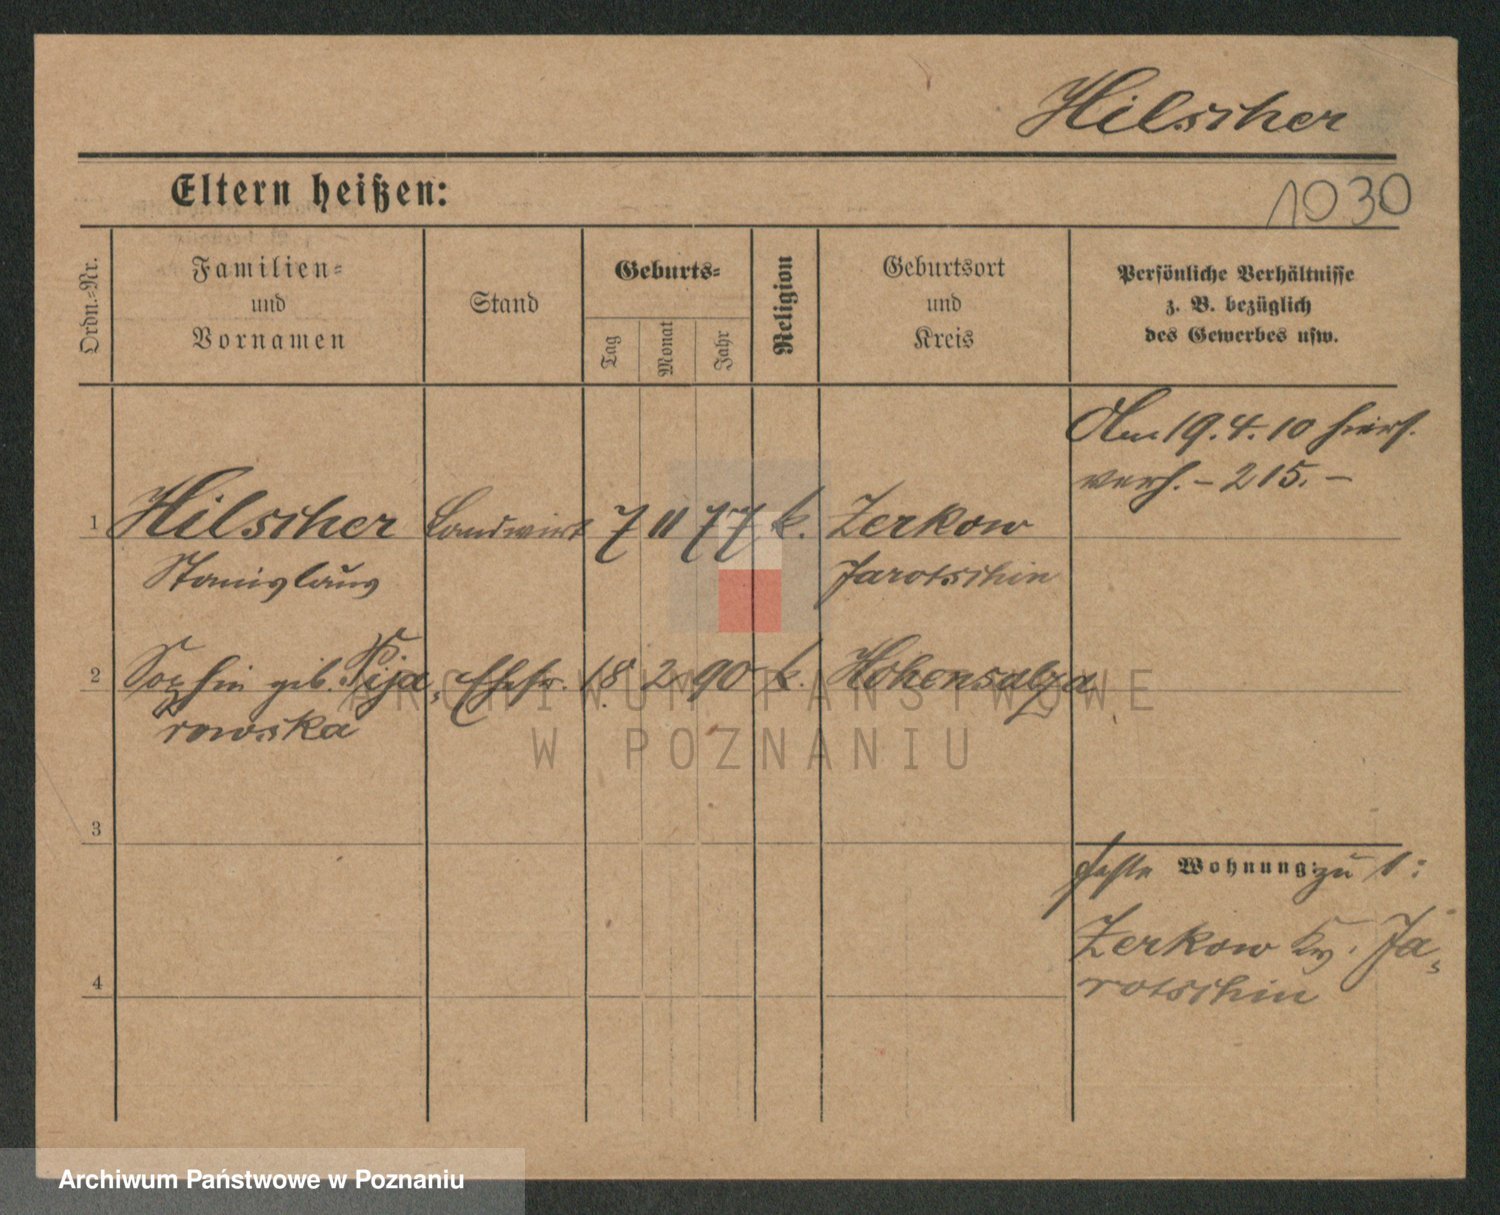 Hilscher
Eltern heißen:
1030
Ordn.-Nr.
Familien-
und
Vornamen
Stand
Geburts-
Tag
Monat
Jahr
Religion
Geburtsort
und
Kreis
Persönliche Verhältnisse
z. B. bezüglich
des Gewerbes usw.
Am 19.4.10 hier
verh. – 215. –
1 Hilscher Landwirt 7 11 77 k. Zerkow
Stanislaus Jarotschin
2 Sophie geb. Pija- Ehefr. 18. 2 90 k. Hohensalza
rowska
3
feste Wohnung: zu 1:
Zerkow Kr. Ja-
rotschin
4
ARCHIWUM PAŃSTWOWE
W POZNANIU
Archiwum Państwowe w Poznaniu